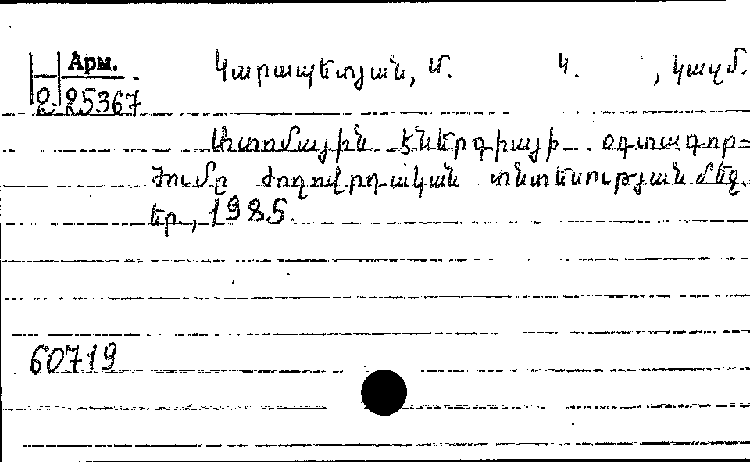 Арм.
2-25367
Կարապետյան, Մ. Կ. , կազմ.
Ատոմային էներգիայի օգտագոր-
ծումը ժողովրդական տնտեսության մեջ.
Եր., 1985.
60719